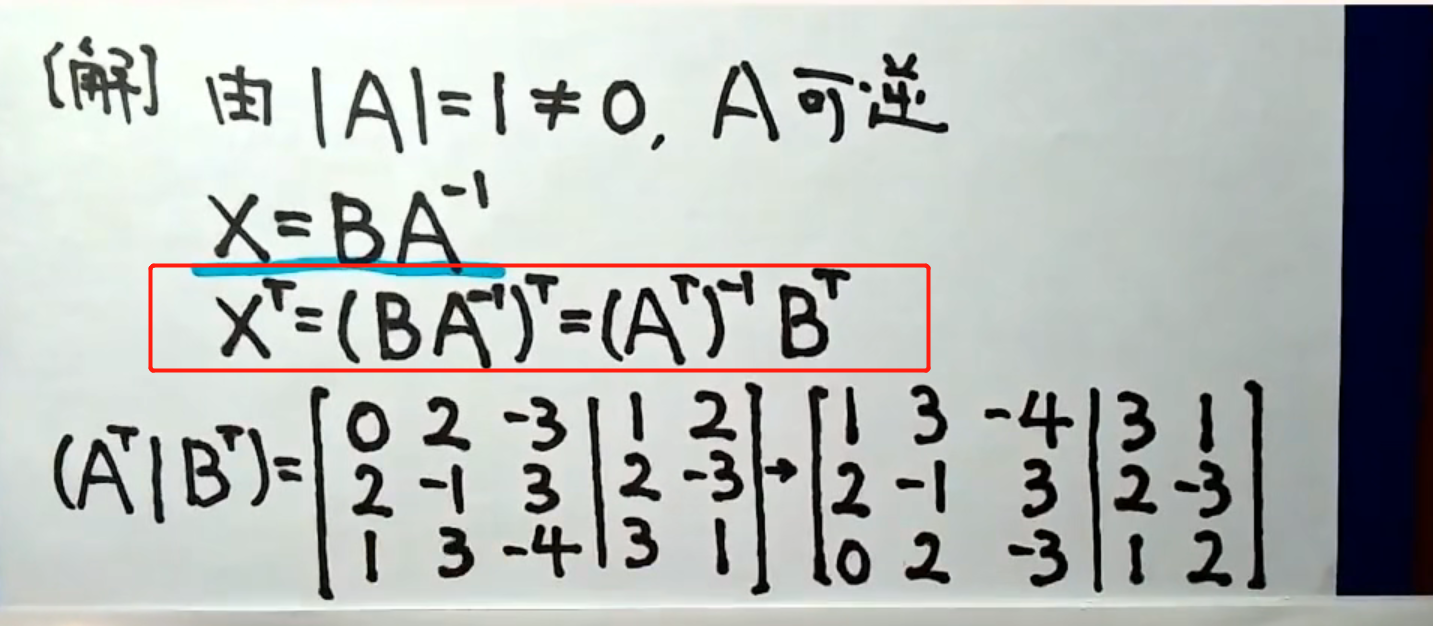 [解] 由 |A|=1≠0, A可逆
X=BA⁻¹
Xᵀ=(BA⁻¹)ᵀ=(Aᵀ)⁻¹Bᵀ
(Aᵀ|Bᵀ)=[0 2 -3 | 1 2]→[1 3 -4 | 3 1]
[2 -1 3 | 2 -3] [2 -1 3 | 2 -3]
[1 3 -4 | 3 1] [0 2 -3 | 1 2]